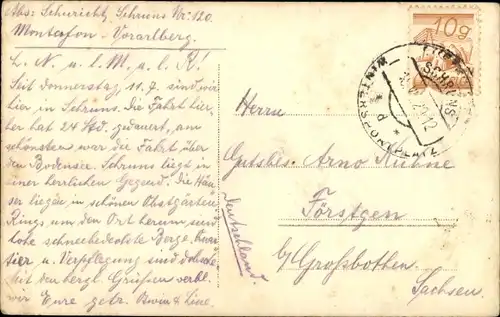 Abs: Schuricht, Schruns Nr: 120.
Montafon - Vorarlberg.
L. N. u. l. M. u. l. R!
Seit Donnerstag 11. 7. sind wir
hier in Schruns. Die Fahrt hier-
her hat 24 Std. gedauert, am
schönsten war die Fahrt über
den Bodensee. Schruns liegt in
einer herrlichen Gegend. Die Häu-
ser liegen in schönen Obstgärten.
Rings um den Ort herum sind
hohe schneebedeckte Berge. Quar-
tier u. Verpflegung sind
Mit den herzl. Grüßen verbl.
wir Eure getr.
Herrn
Gutsbes. Arno Kühne
Förstgen
b/ Großbothen.
Sachsen.
Deutschland.
10g
SCHRUNS
WINTERSPORTPLATZ